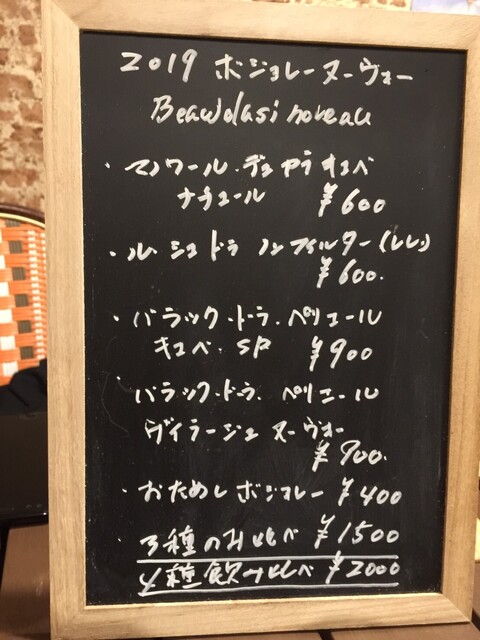 2019 ボジョレーヌーヴォー
Beawdasi noveau
・マノワール・デュ
ナチュール ¥600
・ル・シュドラ ノンフィルター(レレ)
¥600.
・バラック・ドラ・ペリエール
キュベ・SP ¥900
・バラック・ドラ・ペリエール
ヴィラージュ ヌーヴォー
¥700.
・おためしボジョレー ¥400
・3種のみ比べ ¥1500
4種飲み比べ ¥2000